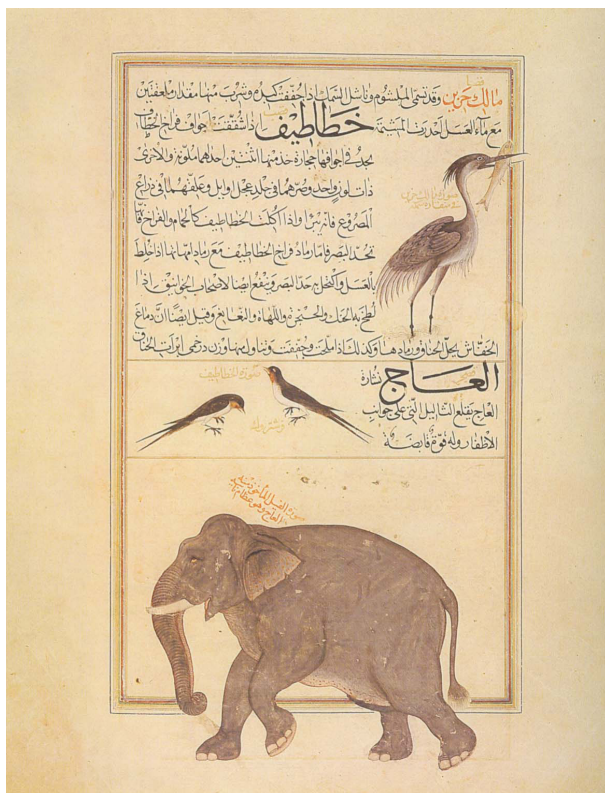 مالك حزين وقد تسمى البلشوم وقاتل السمك اذا جففت كبده وشرب منها مقدار ملعقتين
مع ماء العسل احدرت المشيمة خطاطيف اذا شققت اجواف فراخ الخطاف
يجد في اجوافها حجارة خذ منها اثنتين احدهما ملونة والاخرى
ذات لون واحد وصرهما في جلد عجل او ايل وعلقهما في ذراع
المصروع فانه يبرا واذا اكلت الخطاطيف كالحمام والفراخ
تحد البصر فاما رماد فراخ الخطاطيف مع رماد امهاتها اذا خلط
بالعسل واكتحل به حد البصر وينفع ايضا لاصحاب الخوانيق اذا
لطخ به الحنك والحنجرة واللهاة والنغانغ وقيل ايضا ان دماغ
الخفاش يحل الخناق ورمادها وكذلك اذا ملحت وجففت وتناول منها وزن درخمي ابرات الخناق
العاج نشارة
العاج يقلع الثآليل التي على جوانب
الاظفار وله قوة قابضة
صورة الخطاطيف
صورة الفيل الماخوذ منه
العاج وهو عظام نابه